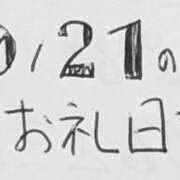 /21の
お礼日